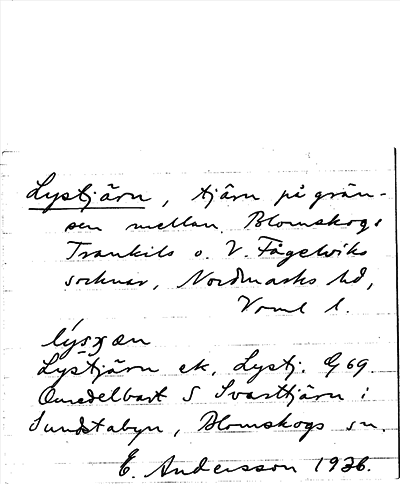 Lystjärn, tjärn på grän-
sen mellan Blomskogs
Trankils o. V. Fågelviks
socknar, Nordmarks hd,
Vrml l.
lýsɟæn
Lystjärn ek, Lystj. G 69.
Omedelbart S Svarttjärn i
Sundstabyn, Blomskogs sn.
E. Andersson 1936.